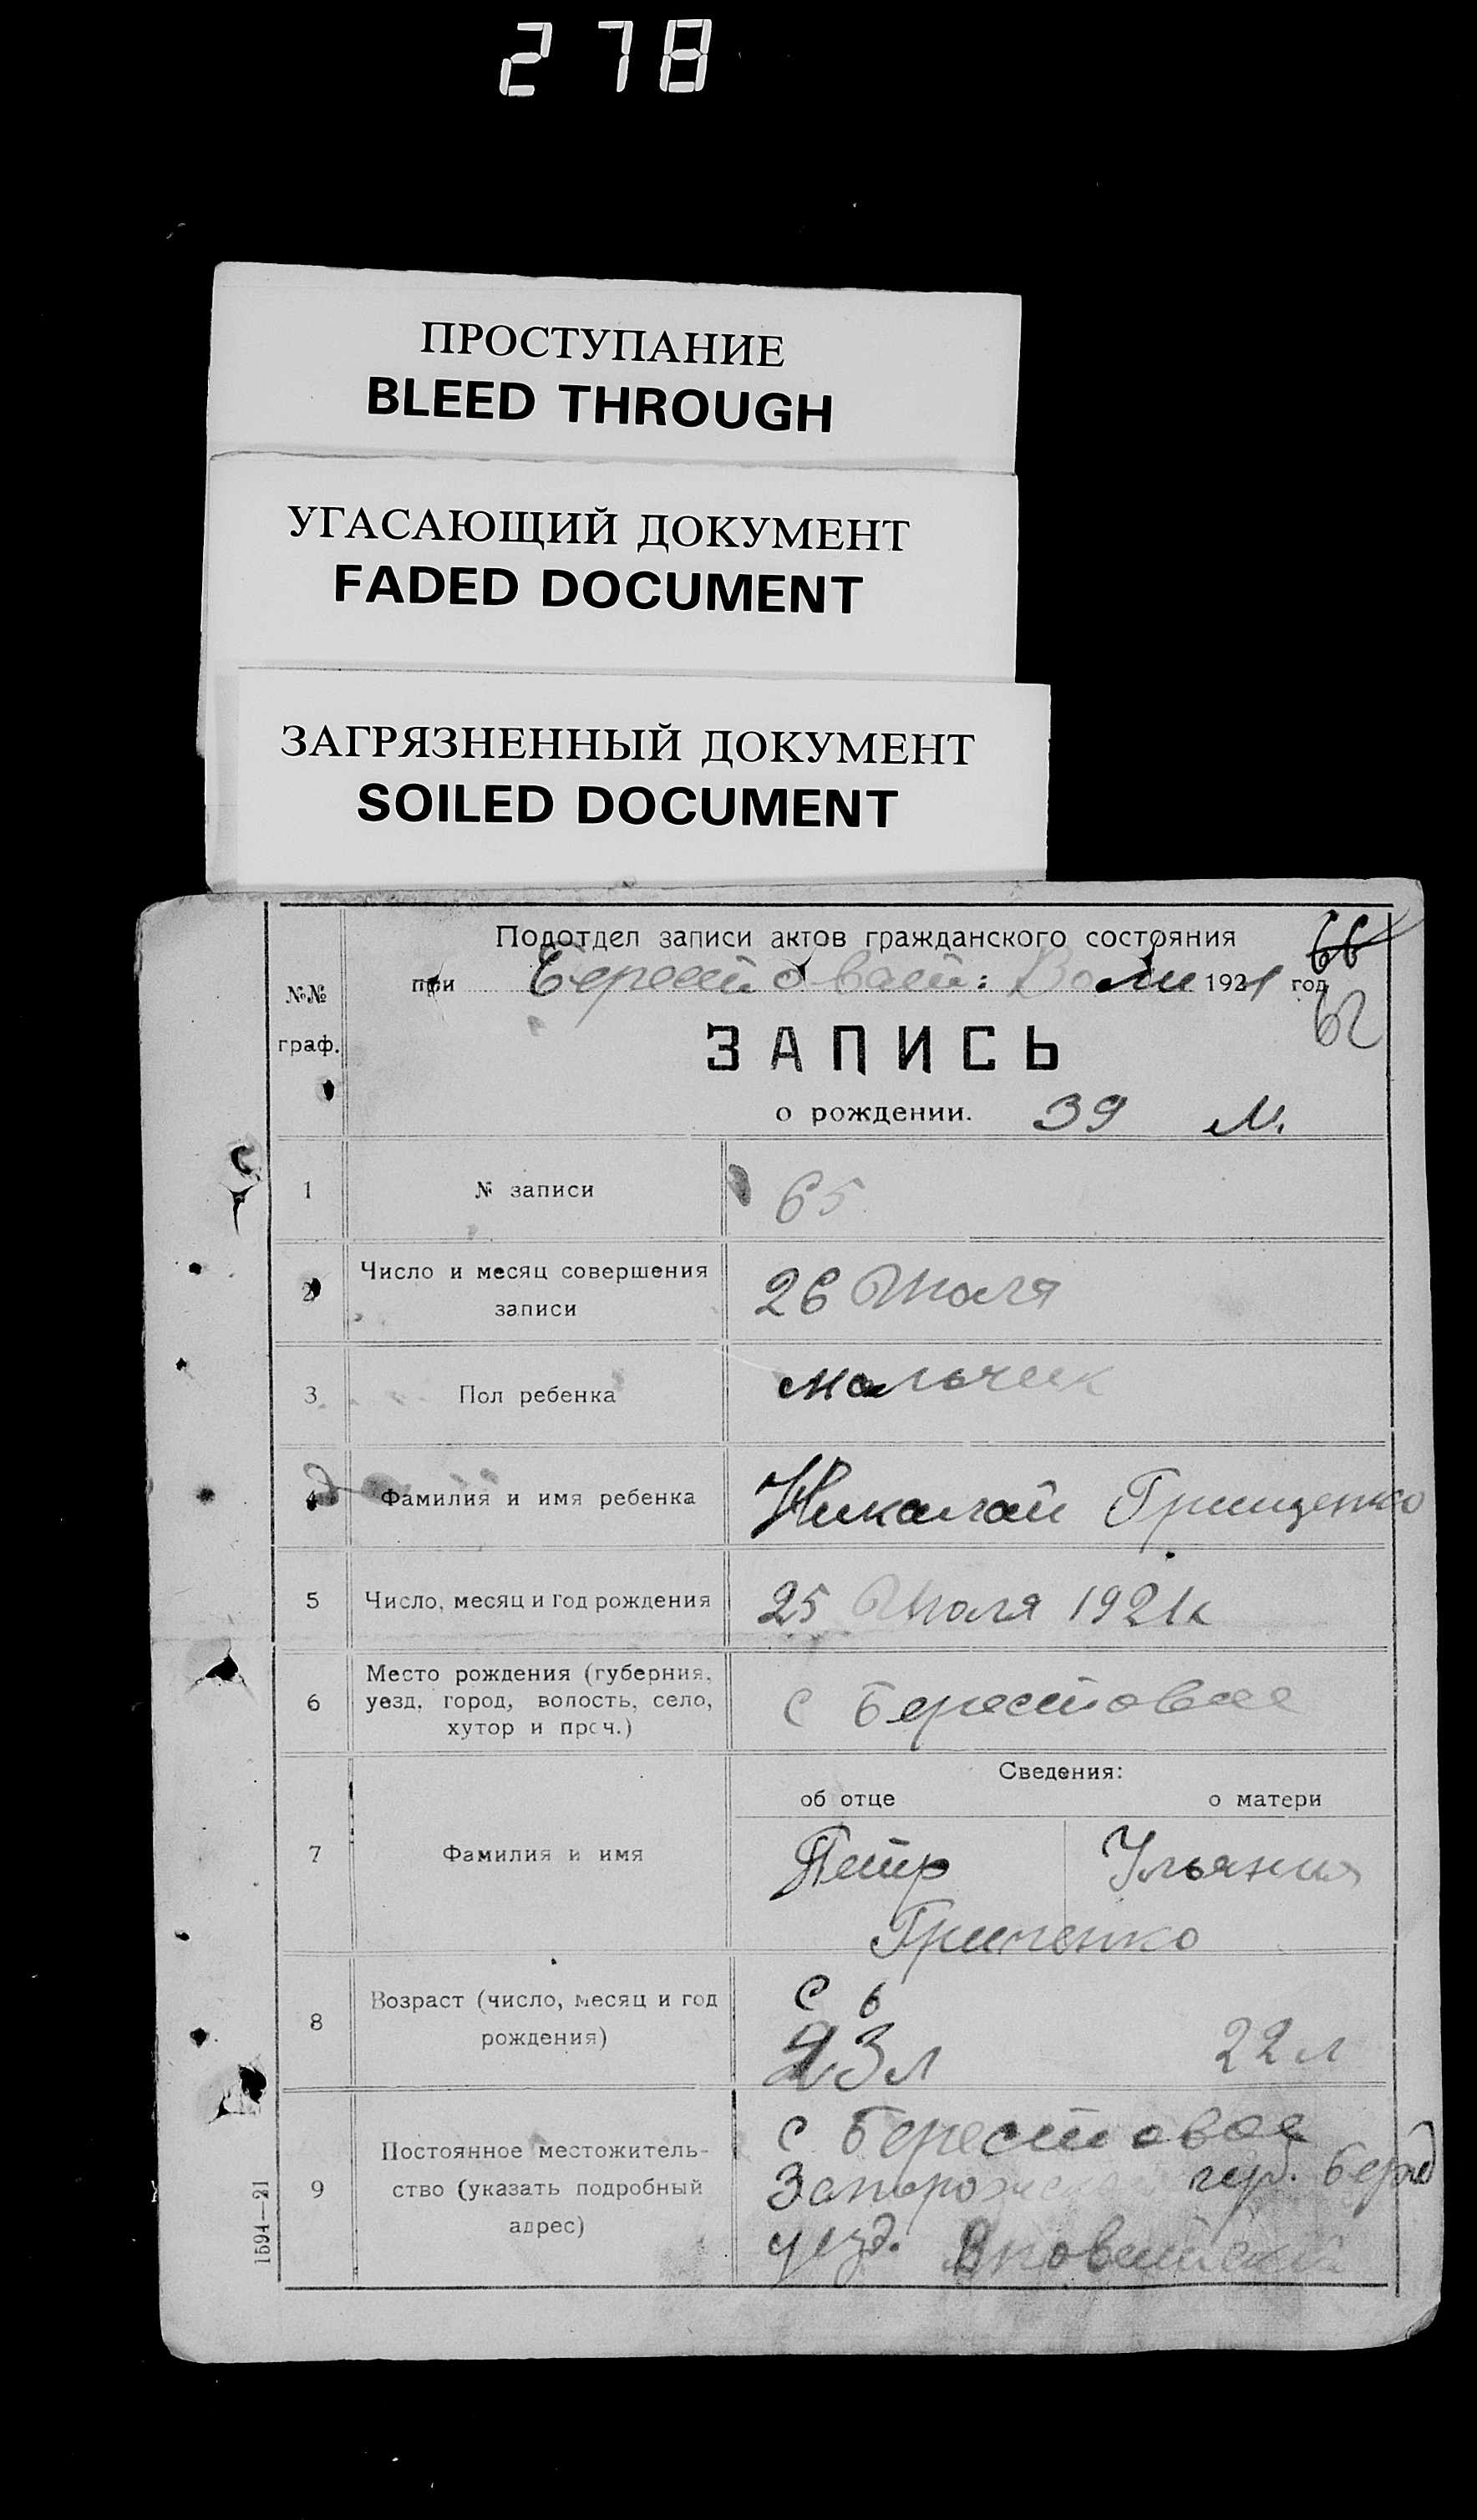 278
ПРОСТУПАНИЕ
BLEED THROUGH
УГАСАЮЩИЙ ДОКУМЕНТ
FADED DOCUMENT
ЗАГРЯЗНЕННЫЙ ДОКУМЕНТ
SOILED DOCUMENT
Подотдел записи актов гражданского состояния
66
при Берестоват: 1921 год
62
№№
граф.
ЗАПИСЬ
о рождении. 39 М.
1 № записи 65
2 Число и месяц совершения
записи
26 Июля
3 Пол ребенка мальчик
4 Фамилия и имя ребенка Николай Грищенко
5 Число, месяц и год рождения 25 Июля 1921г
6 Место рождения (губерния,
уезд, город, волость, село,
хутор и проч.)
с Берестовое
Сведения:
об отце о матери
7 Фамилия и имя Петр Ульяния
Гриченко
8 Возраст (число, месяц и год
рождения)
23 л 22 л
9 Постоянное местожитель-
ство (указать подробный
адрес)
с Берестовое
Запорожской губ. Берд
уезд.
1594—21